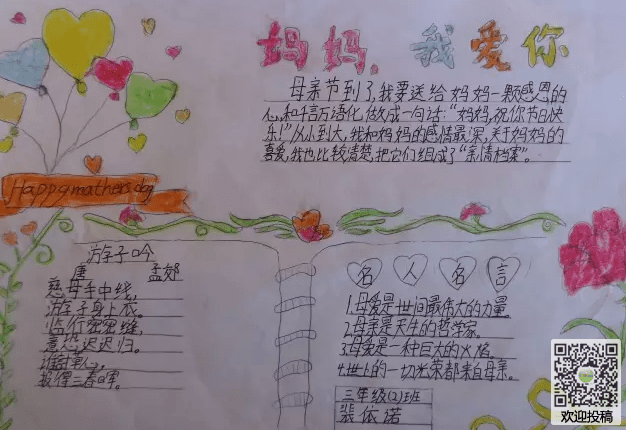 妈妈,我爱你
母亲节到了,我要送给妈妈一颗感恩的
心,和千言万语化做成一句话:“妈妈,祝你节日快
乐!”从小到大,我和妈妈的感情最深,关于妈妈的
喜爱,我也比较清楚,把它们组成了“亲情档案”。
Happy mathers day
游子吟
唐 孟郊
慈母手中线,
游子身上衣。
临行密密缝,
意恐迟迟归。
报得三春晖。
名人名言
1.母爱是世间最伟大的力量。
2.母亲是天生的哲学家。
3.母爱是一种巨大的火焰。
4.世上的一切光荣都来自母亲。
三年级(2)班
裴依诺
欢迎投稿